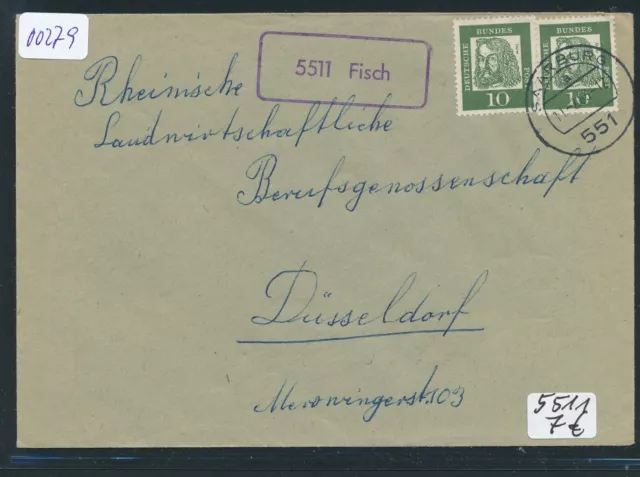 00279
5511 Fisch
DEUTSCHE BUNDESPOST
10
DEUTSCHE BUNDESPOST
10
SAARBURG
551
Rheinische
Landwirtschaftliche
Berufsgenossenschaft
Düsseldorf
Merowingerstr.103
5511
7€